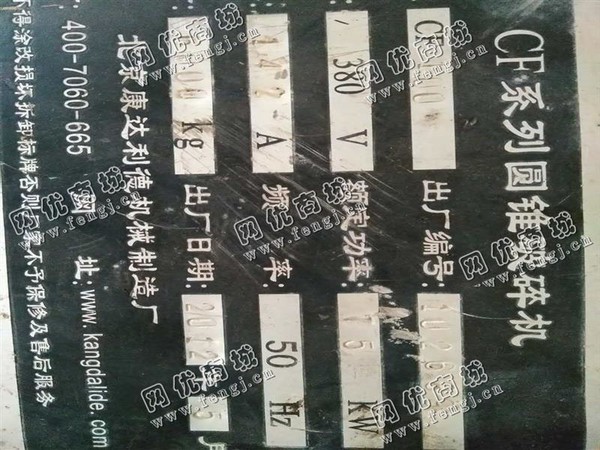 CF系列圆锥破碎机
出厂编号:
380 V 额定功率: 75 KW
A 频 率: 50 Hz
kg 出厂日期: 2012年5月
北京康达利德机械制造厂
400-7060-665 网 址:www.kangdalide.com
不得涂改损坏拆卸标牌否则厂家不予保修及售后服务
网优商城
www.fengj.cn